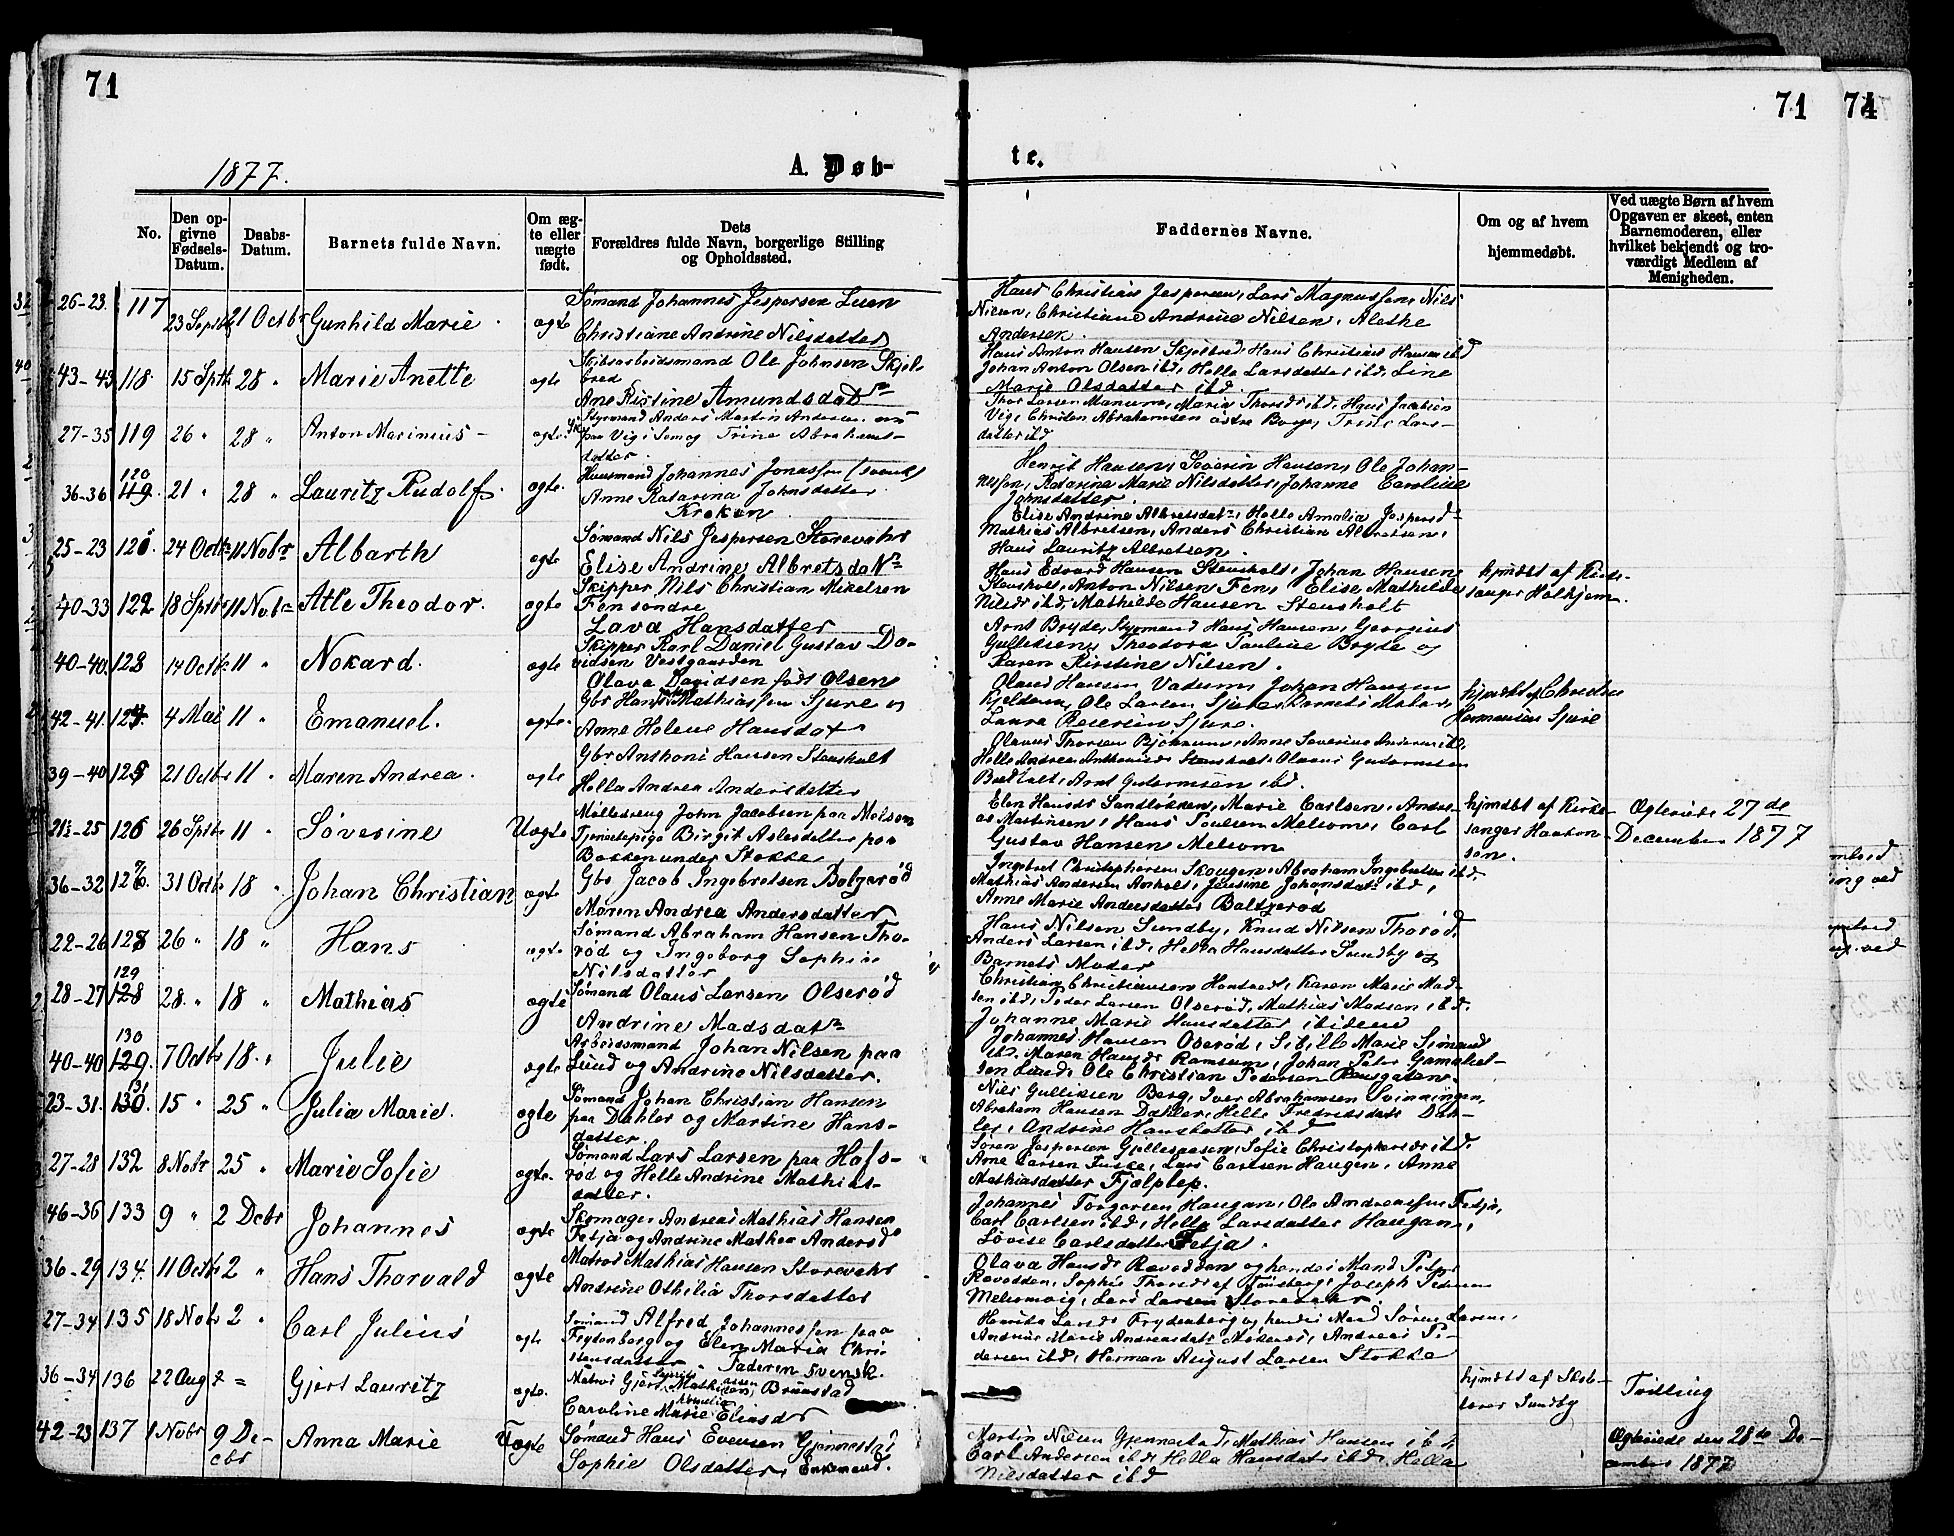 71
71
74
1877.
A. Døb-
te.
No.
Den op-
givne
Fødsels-
Datum.
Daabs-
Datum.
Barnets fulde Navn.
Om æg-
te eller
uægte
født.
Dets
Forældres fulde Navn, borgerlige Stilling
og Opholdssted.
Faddernes Navne.
Om og af hvem
hjemmedøbt.
Ved uægte Børn af hvem
Opgaven er skeet, enten
Barnemoderen, eller
hvilket bekjendt og tro-
værdigt Medlem af
Menigheden.
26-23. 117 23 Septbr 21 Octbr Gunhild Marie. ægte
Sømand Johannes Jespersen
Christiane Andrine Nilsdatter
Hans Christian Jespersen, Lars Magnussen, Nils
Nilsen, Christiane Andrine Nilsen, Alethe
Andersen.
43-43 118 15 Sptb 28 " Marie Anette ægte
Skibsarbeidsmand Ole Johnsen Skjel-
bred,
Ane Kistine Amundsdat
Hans Anton Hansen Skjelbred, Hans Christian Hansen ibd
Johan Anton Olsen ibd, Helle Larsdatter ibd, Line
Marie Olsdatter ibd.
27-35 119 26 " 28 " Anton Marinius - ægte.
Styrmand Anders Martin Andersen
paa Vig i Sem og Trine Abrahams-
datter.
Thor Larsen Manum, Maria Thorsdr ibd, Hans Jacobsen
Vig, Christen Abrahamsen østre Borge, Trine Lars-
datter ibd
120
36-36 119. 21 " 28 " Lauritz Rudolf. ægte.
Huusmand Johannes Jonassen (svensk)
Anne Katarina Johnsdatter
Kroken
Henrik Hansen, Severin Hansen, Ole Johan-
nessen, Katarine Marie Nilsdatter, Johanne Caroline
Johnsdatter.
25-23 121. 24 Octbr 11 Nobr. Albarth ægte
Sømand Nils Jespersen Storevahr
Elise Andrine Albretsdatr
Elise Andrine Albretsdatr, Helle Amalia Jespersd
Mathias Albretsen, Anders Christian Albretsen,
Hans Lauritz Albretsen.
40-33 122 18 Sptbr 11 Nobr Atle Theodor. ægte
Skipper Nils Christian Mikelsen
Fen søndre
Lava Hansdatter
Hans Edvard Hansen Stensholt, Johan Hansen
Stensholt, Anton Nilsen Fen, Elise Mathilde
Nilsdr ibd, Mathilde Hansen Stensholt
hjmdbt af Kirke-
sanger Holtjem.
40-40. 123 14 Octbr 11 " Nokard. ægte
Skipper Karl Daniel Gustav Da-
vidsen Vestgaarden
Olava Davidsen født Olsen
Arnt Bryde, Styrmand Hans Hansen, Georgius
Gulliksen, Theodora Pauline Bryde og
Karen Kirstine Nilsen.
42-41. 124. 4 Mai 11 " Emanuel. ægte.
Gbr Hans Mathiassen Sjure og
Anne Helene Hansdat
Olaus Hansen Vadum, Johan Hansen
Gjelderen, Ole Larsen Sjure, Barnets Moder,
Laura Reiersen Sjure.
hjmdbt af Christen
Hermansen Sjure
39-40 125 21 Octbr 11 " Maren Andrea. ægte
Gbr Anthoni Hansen Stensholt
Hella Andrea Andersdatter
Olavus Thorsen Bjørnum, Anne Severine Andersen ibd,
Helle Andrea Anthonisdr Stensholt, Olaus Guttormsen
Arnt Guttormsen ibd.
21½-25 126 26 Sptbr 11 " Søverine Uægte
Mølledreng John Jacobsen paa Melsom
Tjenestepige Birgit Aslesdatter paa
Bakken under Stokke
Elen Hansdr Sandløkken, Marie Carlsen, Andre-
as Martinsen, Hans Poulsen Melsom, Carl
Gustav Hansen Melsom
hjmdbt af Kirke-
sanger Haakon-
sen.
Ægteviede 27 de
December 1877
36-32 127. 31 Octbr 18 " Johan Christian ægte
Gbr Jacob Ingebretsen Bolgerød
Maren Andrea Andersdatter
Ingebret Christophersen Skougen, Abraham Ingebretsen ibd.
Mathias Andersen Anholt, Jensine Johansdatr ibd,
Anne Marie Andersdatter Baltzerød
22-26 128 26 " 18 " Hans ægte
Sømand Abraham Hansen Tho-
rød og Ingeborg Sophie
Nilsdatter
Hans Nilsen Sundby, Knud Nilsen Thorød,
Anders Larsen ibd, Helta Hansdatter Sundby og
Barnets Moder
129
28-27 128 28. " 18 " Mathias ægte
Sømand Olaus Larsen Olserød
Andrine Madsdatr
Christian Christiansen Honerød, Karen Marie Mad-
sen ibd, Peder Larsen Olserød, Mathias Madsen ibd.
Johanne Marie Hansdatter ibidem
130
40-40 129. 7 Octbr 18. " Julie ægte
Arbeidsmand Johan Nilsen paa
Lund og Andrine Nilsdatter.
Johannes Hansen Oserød, Sibille Marie Simonsd
ibd. Maren Hansdr Ramsum, Johan Peter Gamaliel-
sen Lund, Ole Christian Pedersen Rensgaten.
131
23-31. 130. 15 " 25 " Julia Marie. ægte
Sømand Johan Christian Hansen
paa Dahler og Martine Hans-
datter.
Nils Gulliksen Berg, Iver Abrahamsen Svinningen,
Abraham Hansen Dahler, Helle Fredriksdatr Dah-
ler, Andrine Hansdatter ibd
27-28 132 8 Nobr 25 " Marie Sofie ægte.
Sømand Lars Larsen paa Hafs-
rød og Helle Andrine Mathias-
datter.
Søren Jespersen Gjellesaasen, Sofie Christophersdr ibd.
Arne Larsen Fuske, Lars Carlsen Haugen, Anne
Mathiasdatter Fjælplep.
46-36 133 9 " 2 Decbr Johannes ægte
Skomager Andreas Mathias Hansen
Fetja og Andrine Mathea Andersd
Johannes Torgersen Haugan, Ole Andreassen Fetja,
Carl Carlsen ibd, Hella Larsdatter Haugan,
Lovise Carlsdatter Fetja.
36-29 134. 11 Octbr 2 " Hans Thorvald ægte
Matros Mathias Hansen Storevahr
Andrine Othilia Thorsdatter
Olava Hansdr Ravodden og hendes Mand Peter
Ravodden, Sophie Thorsdr af Tønsberg, Joseph Pedersen
Melsomvig, Lars Larsen Storevahr
27-34 135 18 Nobr 2 " Carl Julius ægte
Sømand Alfred Johannessen paa
Frydenberg og Elen Maria Chri-
stensdatter - Faderen Svensk.
Henrika Larsdr Frydenberg og hendes Mand Søren Larsen,
Andrine Marie Andreasdatr Møsserød, Andreas Pe-
dersen ibd, Herman August Larsen Stokke
36-34 136 22 Aug 2 = Gjert Lauritz ægte.
Matros Gjert Mathisen Brunstad
Caroline Marie Eliasdr
hjmdbt af Sko-
lærer Sundby
Tvilling
42-23 137 1 Nobr 9 De-
cbr Anna Marie Uægte
Sømand Hans Evensen Gjennestad
Sophie Olsdatter, Enkemand.
Martin Nilsen Gjennestad, Mathias Hansen ibd
Carl Andersen ibd, Hella Hansdatr ibd, Hella
Nilsdatter ibd
Ægteviede den 28 de De-
cember 1877